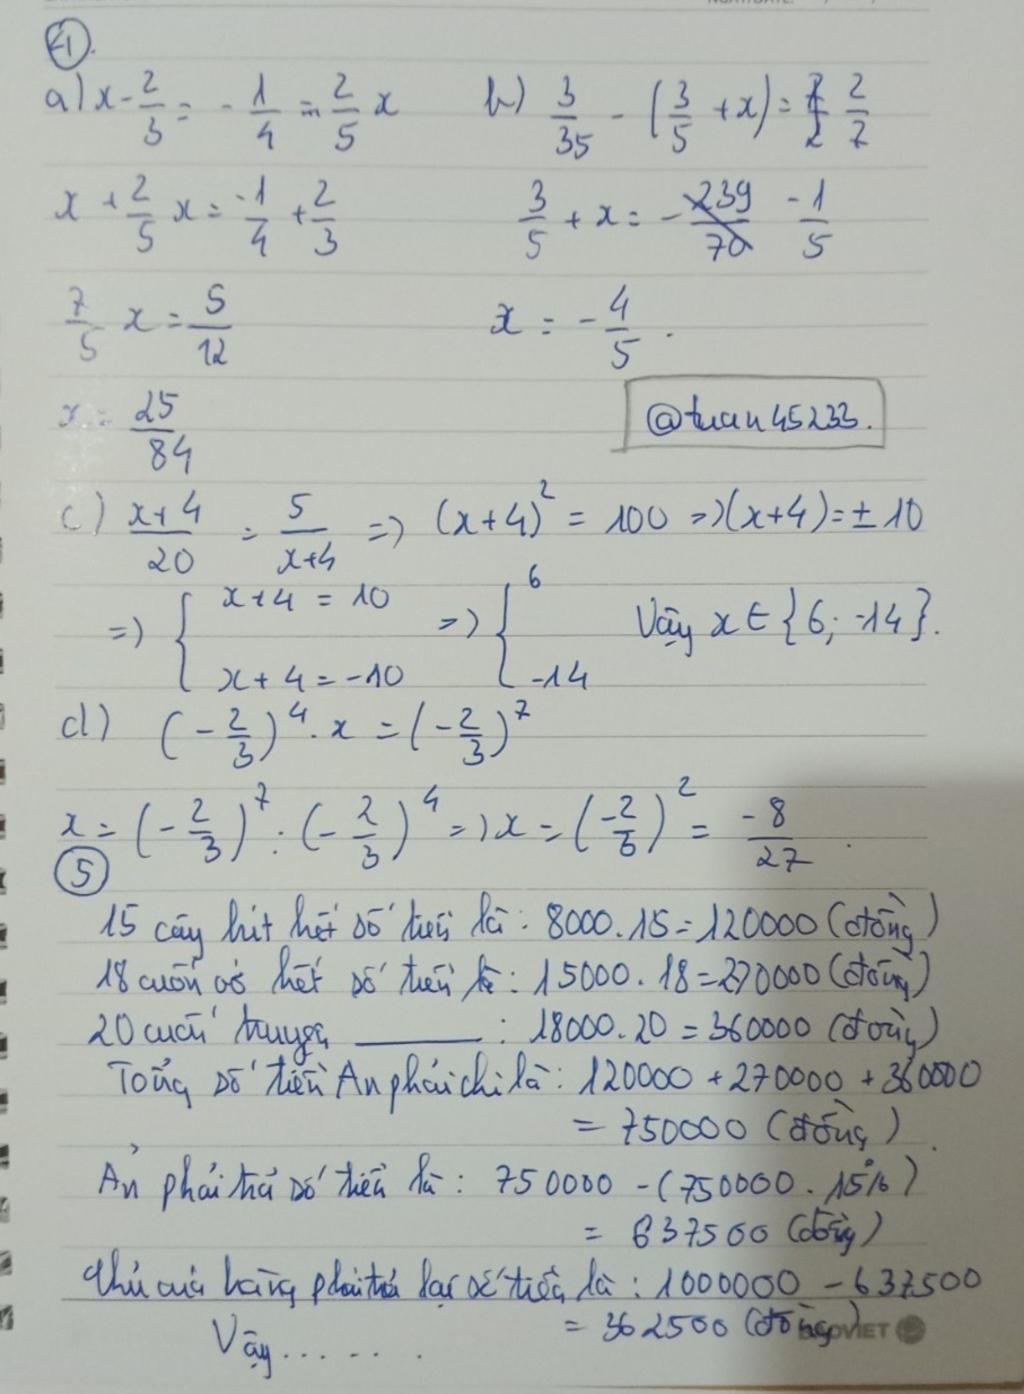 4.
a) x - 2/3 = - 1/4 - 2/5 x
b) 3/35 - (3/5 + x) = 2/7
x + 2/5 x = -1/4 + 2/3
3/5 + x = -1/5
7/5 x = 5/12
x = - 4/5.
x = 25/84
@tuan45233.
c) x+4/20 = 5/x+4 => (x+4)² = 100 => (x+4) = ± 10
=> { x+4 = 10 => { 6 Vậy x ∈ {6; -14}.
x+4 = -10 -14
d) (-2/3)⁴ . x = (-2/3)⁷
x = (-2/3)⁷ : (-2/3)⁴ => x = (-2/3)² = -8/27.
5
15 cây bút hết số tiền là: 8000.15 = 120000 (đồng)
18 cuốn vở hết số tiền là: 15000.18 = 270000 (đồng)
20 cuốn truyện ——— : 18000.20 = 360000 (đồng)
Tổng số tiền An phải chi là: 120000 + 270000 + 360000
= 750000 (đồng).
An phải trả số tiền là: 750000 - (750000.15%)
= 637500 (đồng)
Thu cửa hàng phải trả lại số tiền là: 1000000 - 637500
= 362500 (đồng)
Vậy.......